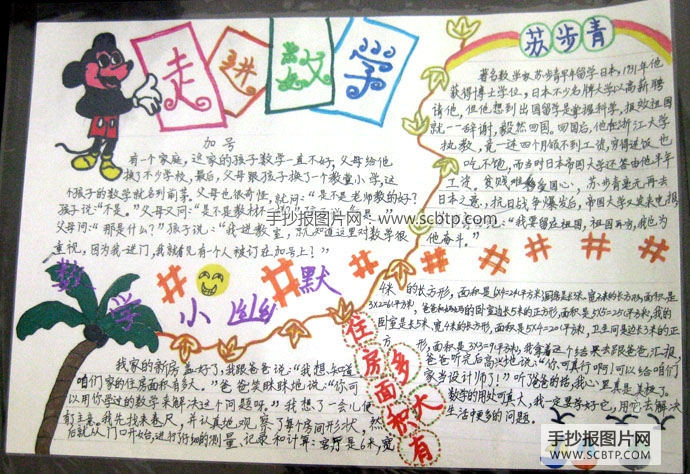 走进数学
苏步青
加号
有一个家庭，这家的孩子数学一直不好，父母给他
换了不少学校，最后，父母跟孩子换了一个教堂小学，这
个孩子的数学就名列前茅。父母也很奇怪，就问：“是不是老师教的好？”
孩子说：“不是。”父母又问：“是不是教材不
父母问：“那是什么？”孩子说：“我一进教室，就知道这里对数学很
重视，因为我一进门，我就看见有个人被订在加号上？”
著名数学家苏步青早年留学日本，1931年他
获得博士学位，日本不少名牌大学以高薪聘
请他，但他想到出国留学是掌握科学，报效祖国
就一一辞谢，毅然回国。回国后，他在浙江大学
执教，竟一连四个月领不到工资，穷得连饭也
吃不饱，而当时日本帝国大学还答应他半年
工资。贫贱难移爱国心，苏步青毫无再去
日本之意，抗日战争爆发后，帝国大学又发来电报
“我要留在祖国，祖国再穷，我也为
他奋斗。”
手抄报图片网-www.scbtp.com
数学小幽默
住房面积有多大
我家的新房盖好了，我跟爸爸说：“我想知道
咱们家的住房面积有多大。”爸爸笑眯眯地说：“你可
以用你学过的数学来解决这个问题呀。”我想了一会儿便
有了主意。我先找来卷尺，并认真地观察了每个房间形状，然
后就从门口开始，进行仔细的测量、记录和计算：客厅是6米，宽
4米的长方形，面积是6X4=24平方米；厨房是长3米、宽2米的长方形，面积是
3X2=6平方米，爸爸和妈妈的卧室是边长5米的正方形，面积是5X5=25平方米，我的
卧室是长5米，宽4米的长方形，面积是5X4=20平方米，卫生间是边长3米的正方
形，面积是3X3=9平方米，我拿着这个结果去跟爸爸汇报，
爸爸听完后高兴地说：“你可真行啊！可以给咱们
家当设计师了！”听了爸爸的话，我心里真是美极了。
数学的用处可真大，我一定要学好它，用它去解决
生活中更多的问题。
手抄报图片网
WWW.SCBTP.COM